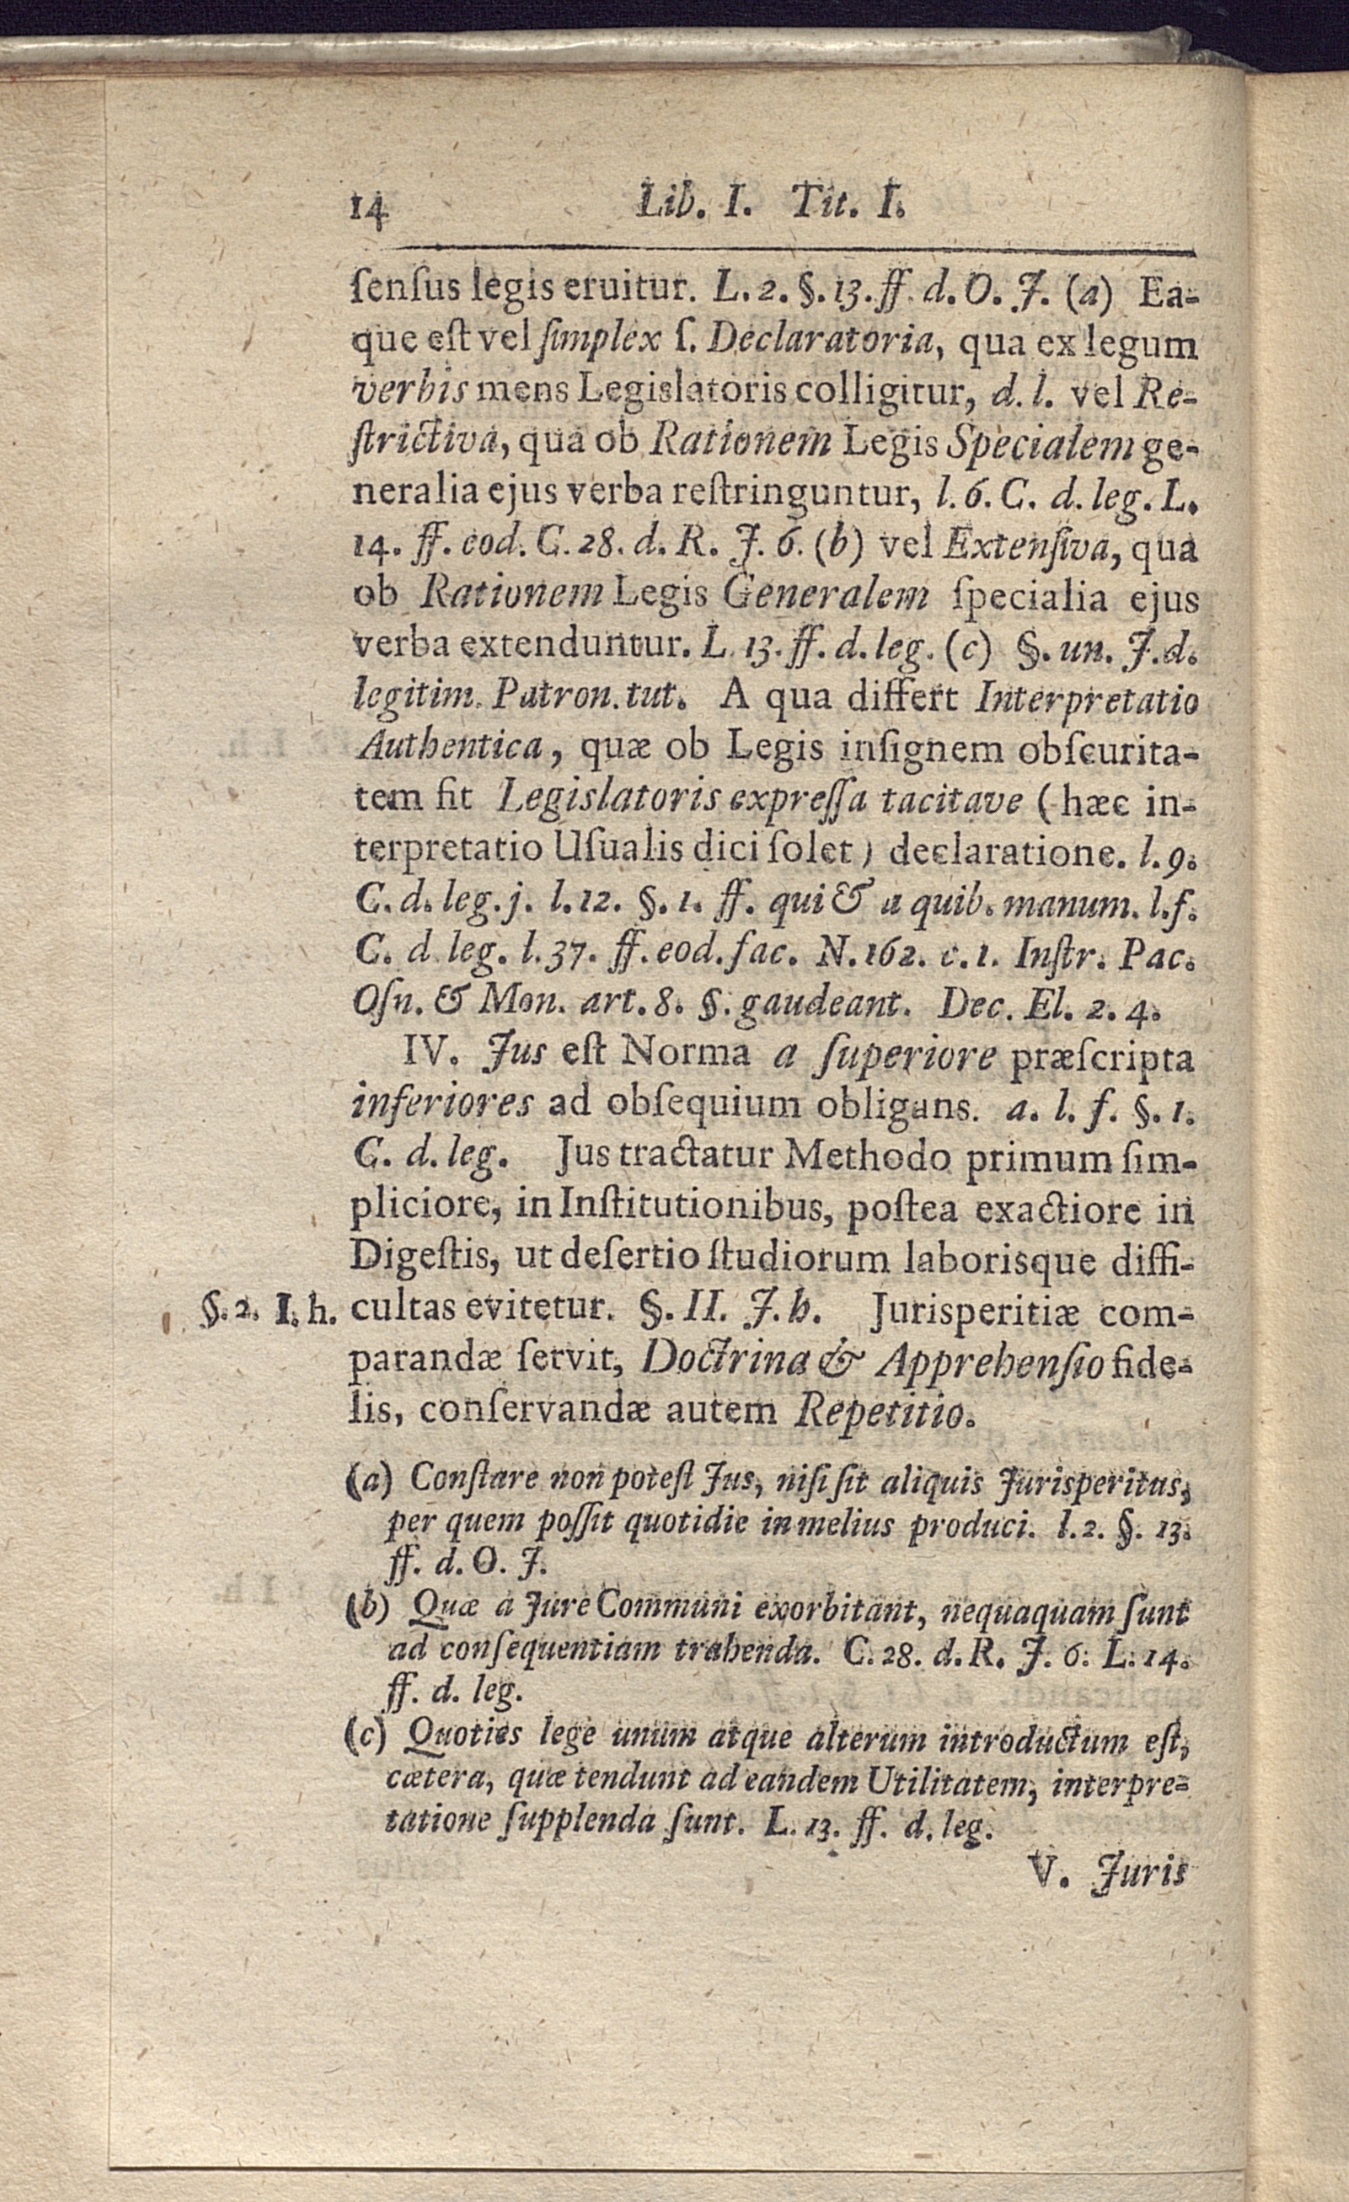 14 Lib. I. Tit. I.
ſenſus legis eruitur. L. 2. §. 13. ff. d. O. J. (a) Ea-
que eſt vel ſimplex ſ. Declaratoria, qua ex legum
verbis mens Legislatoris colligitur, d. l. vel Re-
ſtrictiva, qua ob Rationem Legis Specialem ge-
neralia ejus verba reſtringuntur, l. 6. C. d. leg. L.
14. ff. eod. C. 28. d. R. J. 6. (b) vel Extenſiva, qua
ob Rationem Legis Generalem ſpecialia ejus
verba extenduntur. L. 13. ff. d. leg. (c) §. un. J. d.
legitim. Patron. tut. A qua differt Interpretatio
Authentica, quæ ob Legis inſignem obſcurita-
tem fit Legislatoris expreſſa tacitave (hæc in-
terpretatio Uſualis dici ſolet) declaratione. l. 9.
C. d. leg. j. l. 12. §. 1. ff. qui & a quib. manum. l. f.
C. d leg. l. 37. ff. eod. fac. N. 162. c. 1. Inſtr. Pac.
Oſn. & Mon. art. 8. §. gaudeant. Dec. El. 2. 4.
IV. Jus eſt Norma a ſuperiore præſcripta
inferiores ad obſequium obligans. a. l. f. §. 1.
C. d. leg. Jus tractatur Methodo primum ſim-
pliciore, in Inſtitutionibus, poſtea exactiore in
Digeſtis, ut deſertio ſtudiorum laborisque diffi-
§. 2. I. h. cultas evitetur. §. II. J. h. Jurisperitiæ com-
parandæ ſervit, Doctrina & Apprehenſio fide-
lis, conſervandæ autem Repetitio.
(a) Conſtare non poteſt Jus, niſi ſit aliquis Jurisperitus,
per quem poſſit quotidie in melius produci. l. 2. §. 13.
ff. d. O. J.
(b) Quæ a Jure Communi exorbitant, nequaquam ſunt
ad conſequentiam trahenda. C. 28. d. R. J. 6. L. 14.
ff. d. leg.
(c) Quoties lege unum atque alterum introductum eſt,
cætera, quæ tendunt ad eandem Utilitatem, interpre-
tatione ſupplenda ſunt. L. 13. ff. d. leg.
V. Juris